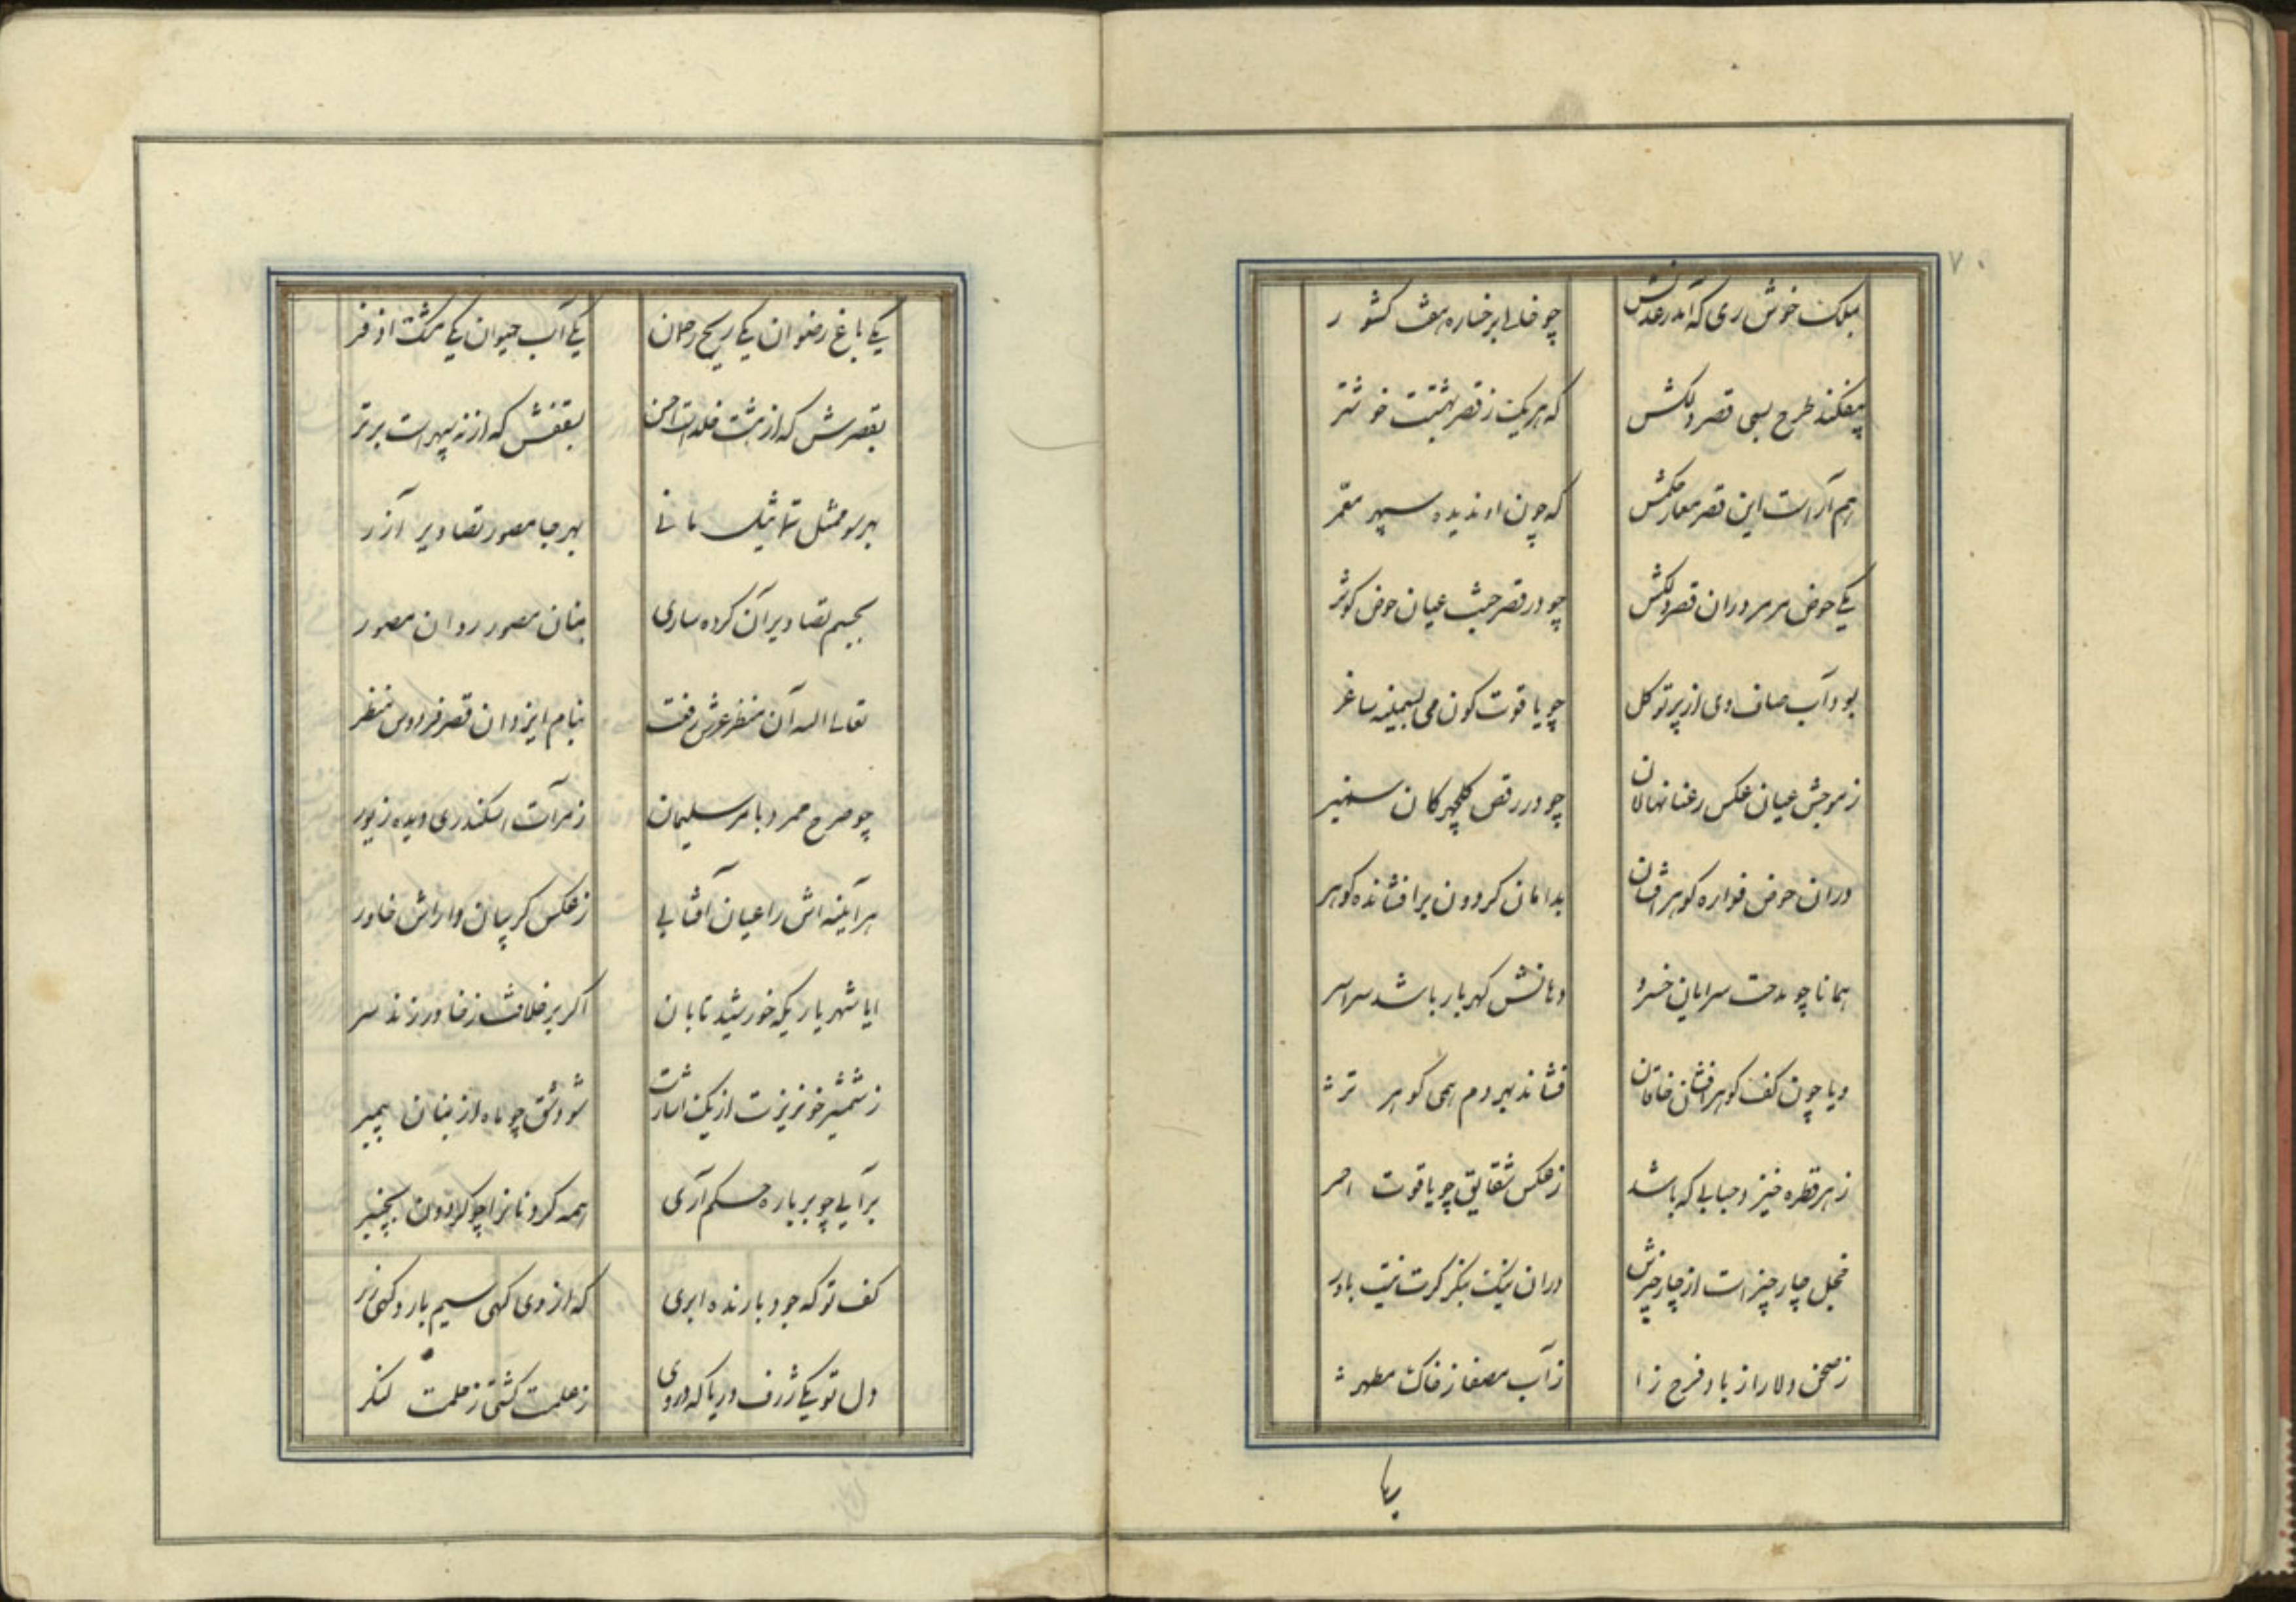 ۷۰
بملک خوش ری که آمد ز عدلش چو خالی بر خساره هفت کشور
بیفکند طرح بسی قصر دلکش که هر یک ز قصر بهشتست خوشتر
هم آراست این قصر معمار حکمش که چون او ندیده سپهر معمر
یکی حوض مرمر در ان قصر دلکش چو در قصر جنت عیان حوض کوثر
بود آب صاف وی از پرتو کل چو یاقوت کون می بسیمینه ساغر
ز موجش عیان عکس رعنا نهالان چو در رقص کلچهرکان سمنبر
در ان حوض فواره کوهر افشان بدامان کردون بر افشانده کوهر
همانا چو مدحت سرایان خسرو دهانش کهر بار باشد سراسر
و یا چون کف کوهر افشان خاقان فشاند بهر دم همی کوهر تر
ز هر قطره خیزد حبابی که باشد ز عکس شقایق چو یاقوت احمر
خجل چار چیز است از چار چیزش در ان نیک بنکر کرت نیست باور
ز صحن دلارا ز باد فرح زا ز آب مصفا ز خاک مطهر
یکی باغ رضوان یکی ریح رحمن یکی آب حیوان یکی مشک اذفر
بقصرش که از هشت خلد است احسن بسقفش که از نه سپهر است برتر
بهر سو ممثل تماثیل مانی بهر جا مصور تصاویر آزر
بجسم تصاویر آن کرده ساری بنان مصور روان مصور
تعالی الله آن منظر عرش رفعت بنام ایزد ان قصر فردوس منظر
چو صرح ممرد با مر سلیمان ز مرآت اسکندری دیده زیور
هر آینه اش را عیان آفتابی ز عکس کریبان دارای خاور
ایا شهریاریکه خورشید تابان اکر بر خلافت ز خاور زند سر
ز شمشیر خونریزت از یک اشارت شود شق چو ماه از بنان پیمبر
بر آیی چو بر باره حکم آری همه کردنانرا چو کردون بچنبر
کف تو که جود بارنده ابری که از وی کهی سیم بارد کهی زر
دل تو یکی ژرف دریا که در وی ز حلمت کشتی ز حلمت لنکر